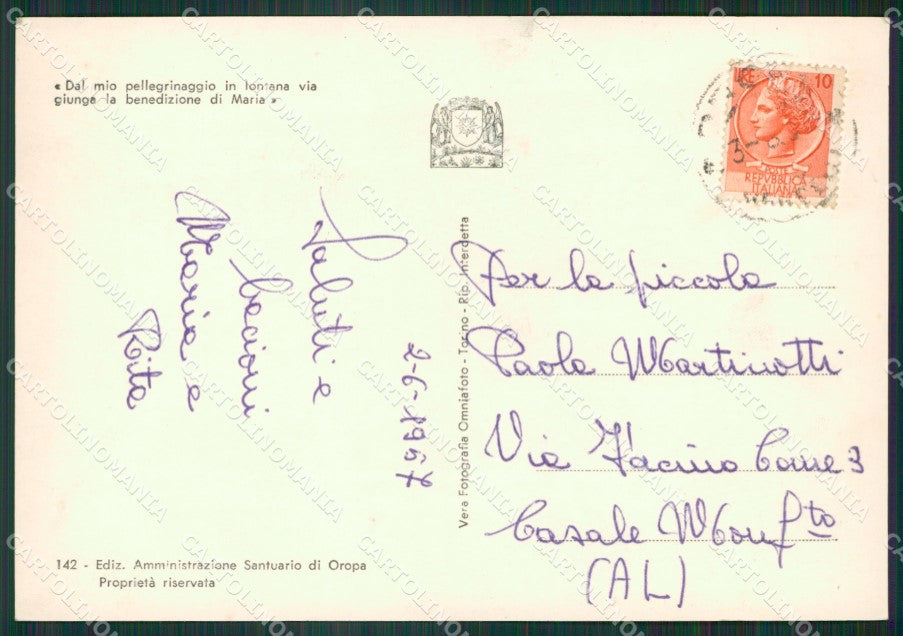 « Dal mio pellegrinaggio in lontana via
giunga la benedizione di Maria »
LIRE 10
POSTE
REPVBBLICA
ITALIANA
Saluti e
bacioni
Maria e
Rita
2-6-1967
Vera Fotografia Omniafoto - Torino - Rip. Interdetta
Per la piccola
Paola Martinotti
Via Facino Cane 3
Casale Monf.to
(AL)
142 - Ediz. Amministrazione Santuario di Oropa
Proprietà riservata
CARTOLINOMANIA